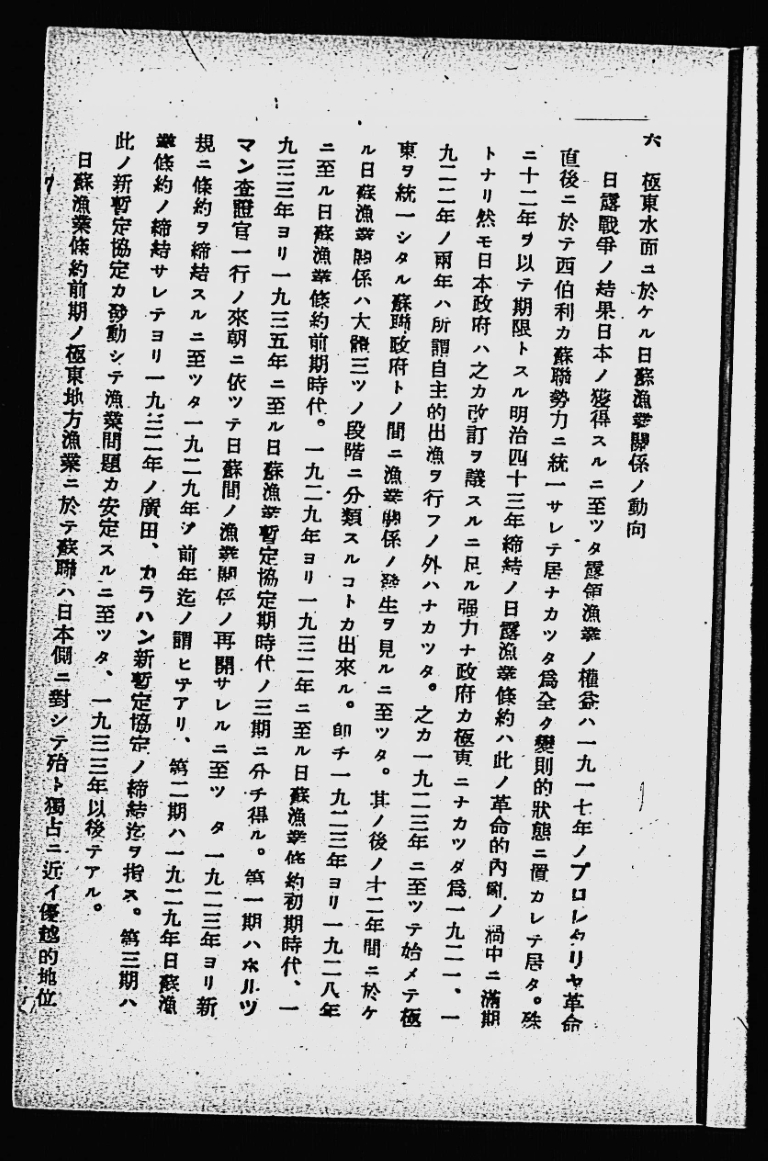 六　極東水面ニ於ケル日蘇漁業關係ノ動向
日露戰爭ノ結果日本ノ獲得スルニ至ツタ露領漁業ノ權益ハ一九一七年ノプロレタリヤ革命
直後ニ於テ西伯利カ蘇聯勢力ニ統一サレテ居ナカツタ爲全ク變則的狀態ニ置カレテ居タ。殊
ニ十二年ヲ以テ期限トスル明治四十三年締結ノ日露漁業條約ハ此ノ革命的內亂ノ渦中ニ滿期
トナリ然モ日本政府ハ之カ改訂ヲ議スルニ足ル强力ナ政府カ極東ニナカツタ爲一九二一、一
九二二年ノ兩年ハ所謂自主的出漁ヲ行フノ外ハナカツタ。之カ一九二三年ニ至ツテ始メテ極
東ヲ統一シタル蘇聯政府トノ間ニ漁業關係ノ發生ヲ見ルニ至ツタ。其ノ後ノ十二年間ニ於ケ
ル日蘇漁業關係ハ大體三ツノ段階ニ分類スルコトカ出來ル。卽チ一九二三年ヨリ一九二八年
ニ至ル日蘇漁業條約前期時代。一九二九年ヨリ一九三二年ニ至ル日蘇漁業條約初期時代、一
九三三年ヨリ一九三五年ニ至ル日蘇漁業暫定協定期時代ノ三期ニ分チ得ル。第一期ハホルツ
マン査證官一行ノ來朝ニ依ツテ日蘇間ノ漁業關係ノ再開サレルニ至ツタ一九二三年ヨリ新
規ニ條約ヲ締結スルニ至ツタ一九二九年ヂ前年迄ノ謂ヒテアリ、第二期ハ一九二九年日蘇漁
業條約ノ締結サレテヨリ一九三二年ノ廣田、カラハン新暫定協定ノ締結迄ヲ指ス。第三期ハ
此ノ新暫定協定カ發動シテ漁業問題カ安定スルニ至ツタ、一九三三年以後テアル。
日蘇漁業條約前期ノ極東地方漁業ニ於テ蘇聯ハ日本側ニ對シテ殆ト獨占ニ近イ優越的地位
7